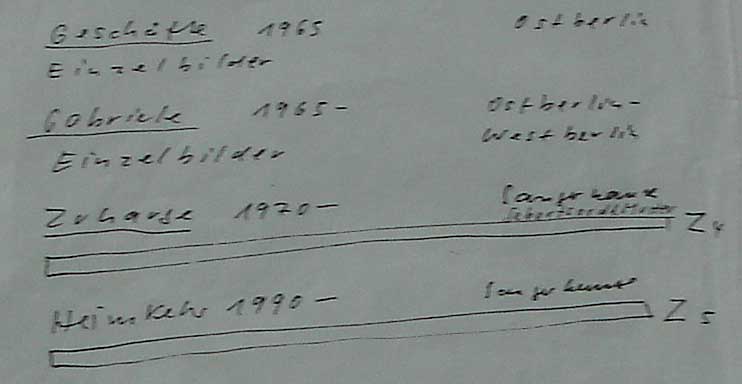 Geschäfte 1965 Ostberlin
Einzelbilder
Gabriele 1965- Ostberlin-
Westberlin
Einzelbilder
Zuhause 1970- Sangerhause
Geburtsort der Mutter Z4
Heimkehr 1990- Sangerhause
Z5